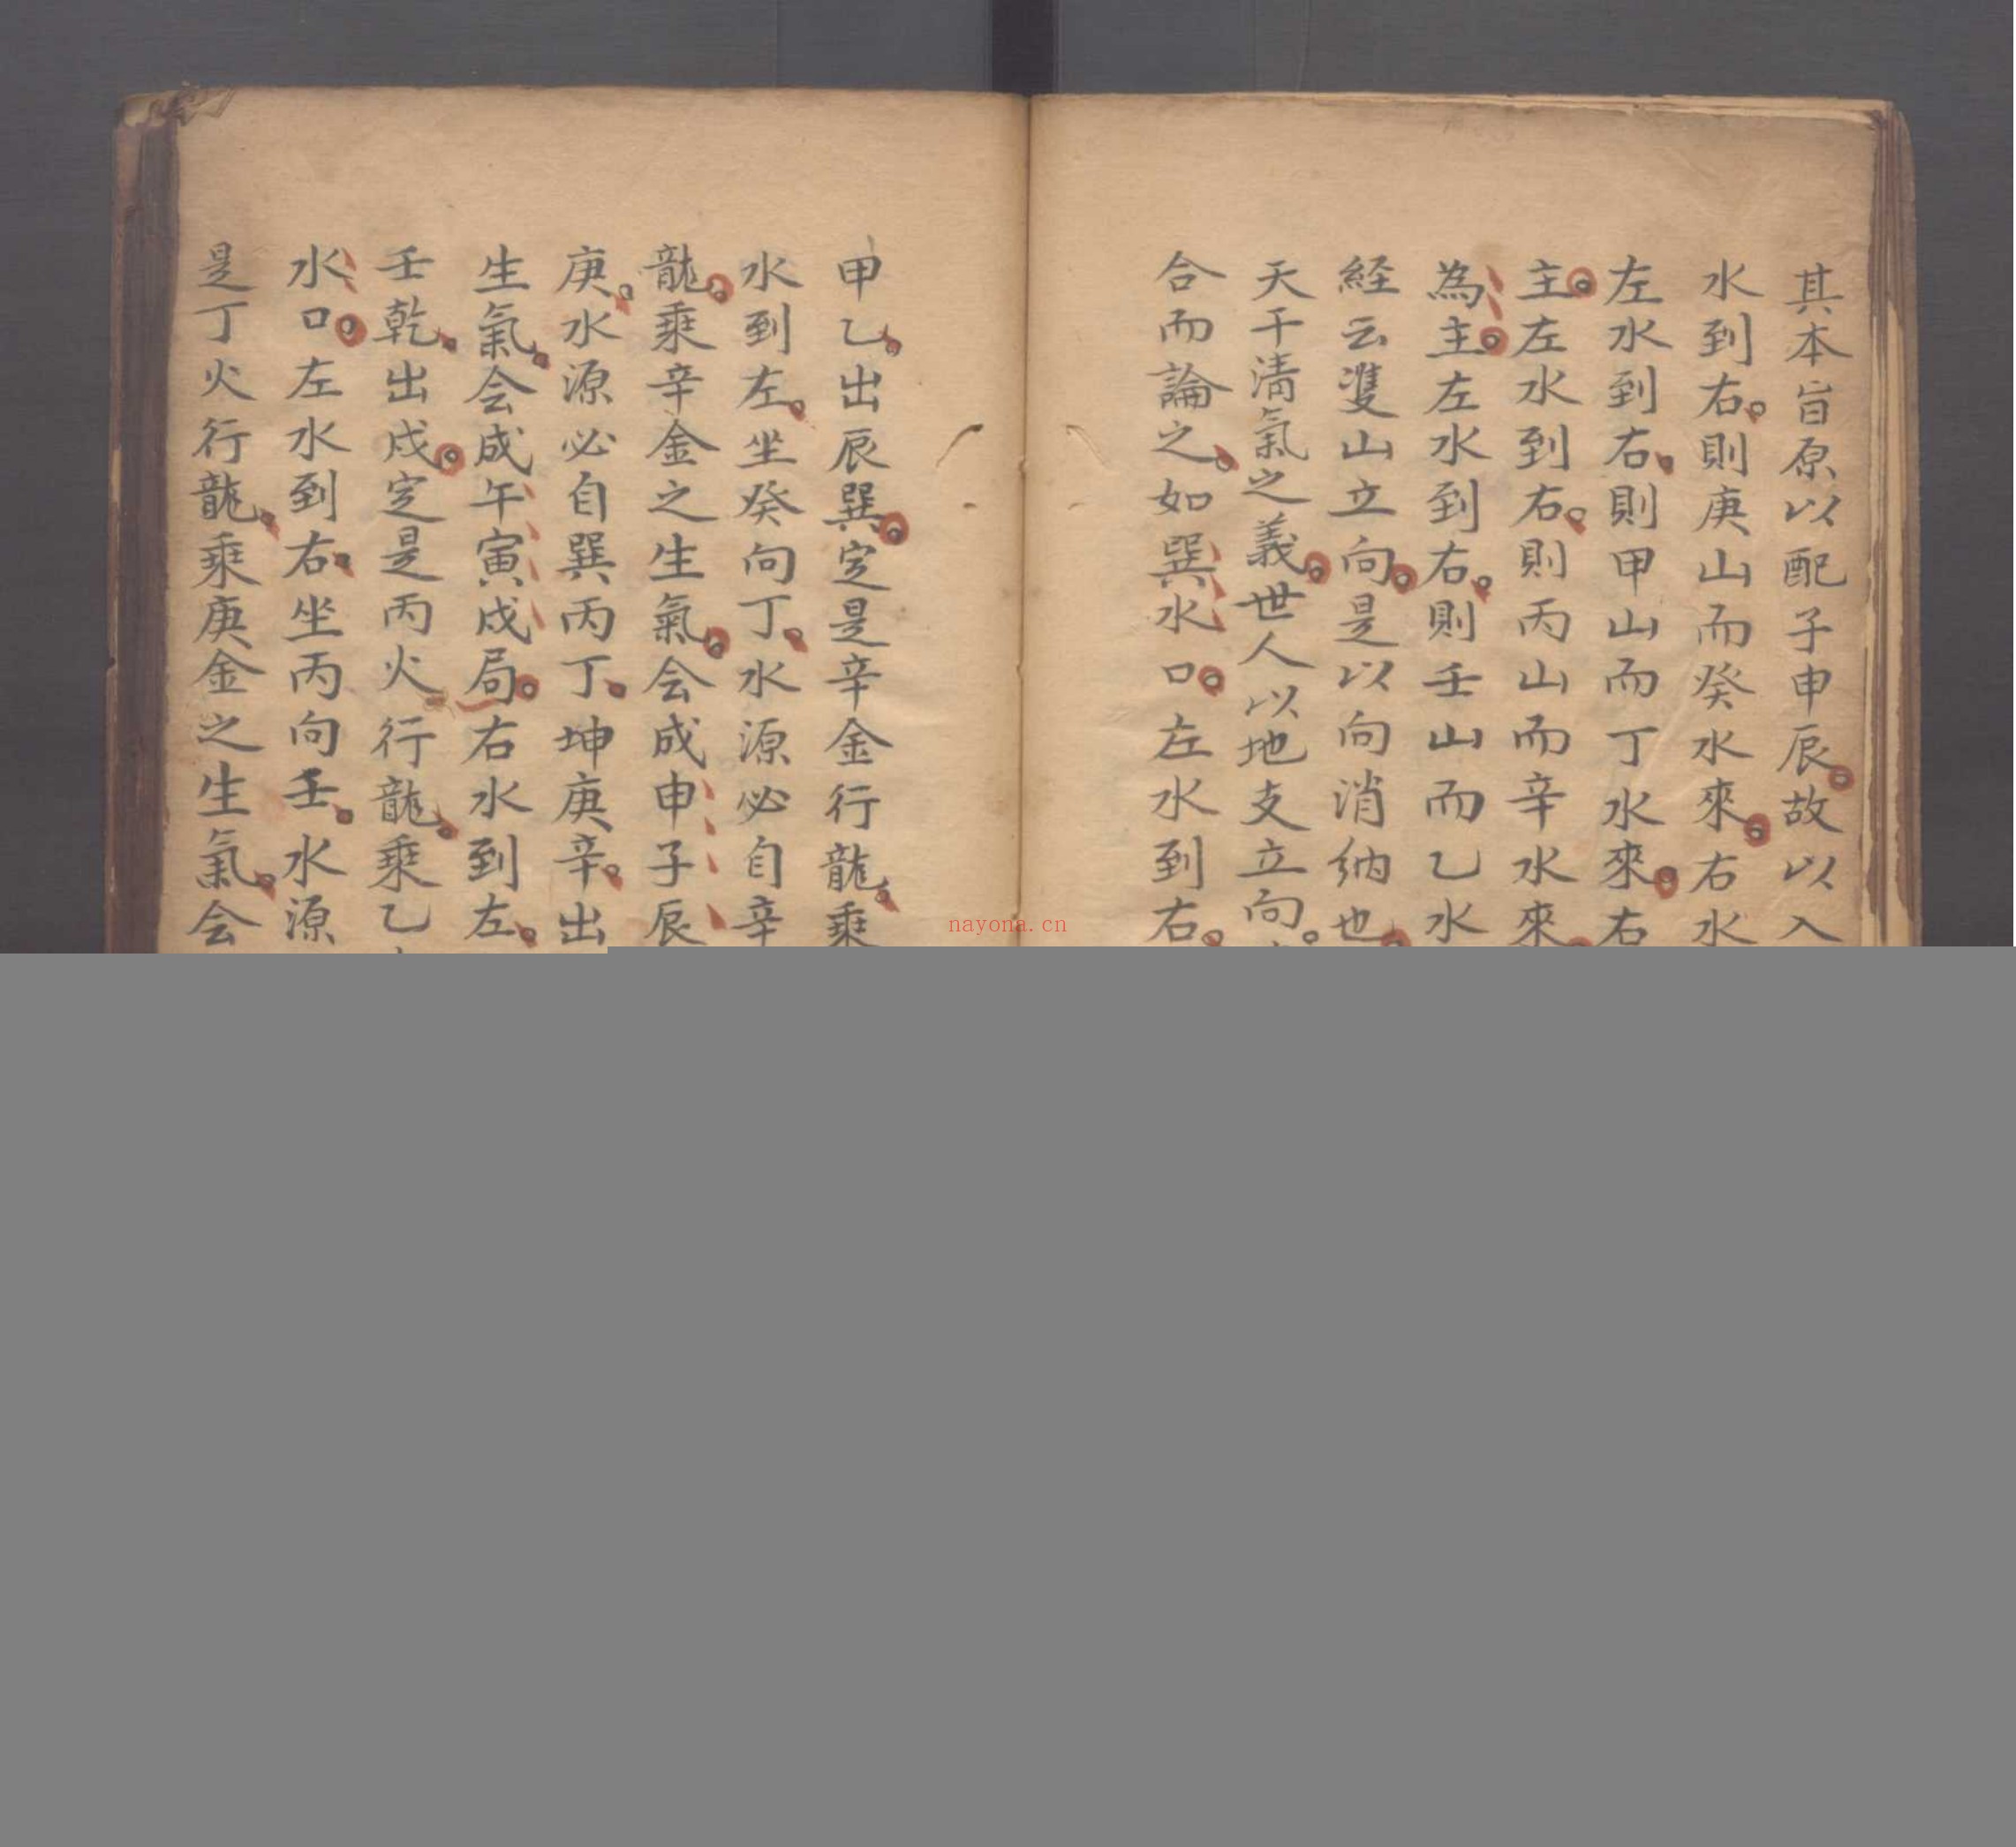 其本旨原以配子申辰。故以入
水到右。則庚山而癸水來。右水
左水到右。則甲山而丁水來。右
主。左水到右。則丙山而辛水來
為主。左水到右。則壬山而乙水
経云雙山立向。是以向消納也
天干清氣之義。世人以地支立向。
合而論之。如巽水口。左水到右。
甲乙。出辰巽。定是辛金行龍。乘
水到左。坐癸向丁。水源必自辛
龍。乘辛金之生氣。会成申子辰
庚。水源必自巽丙丁。坤庚辛。出
生氣。会成午寅戌局。右水到左。
壬乾。出戌。定是丙火行龍。乘乙
水口。左水到右。坐丙向壬。水源
是丁火行龍。乘庚金之生氣。会
nayona.cn